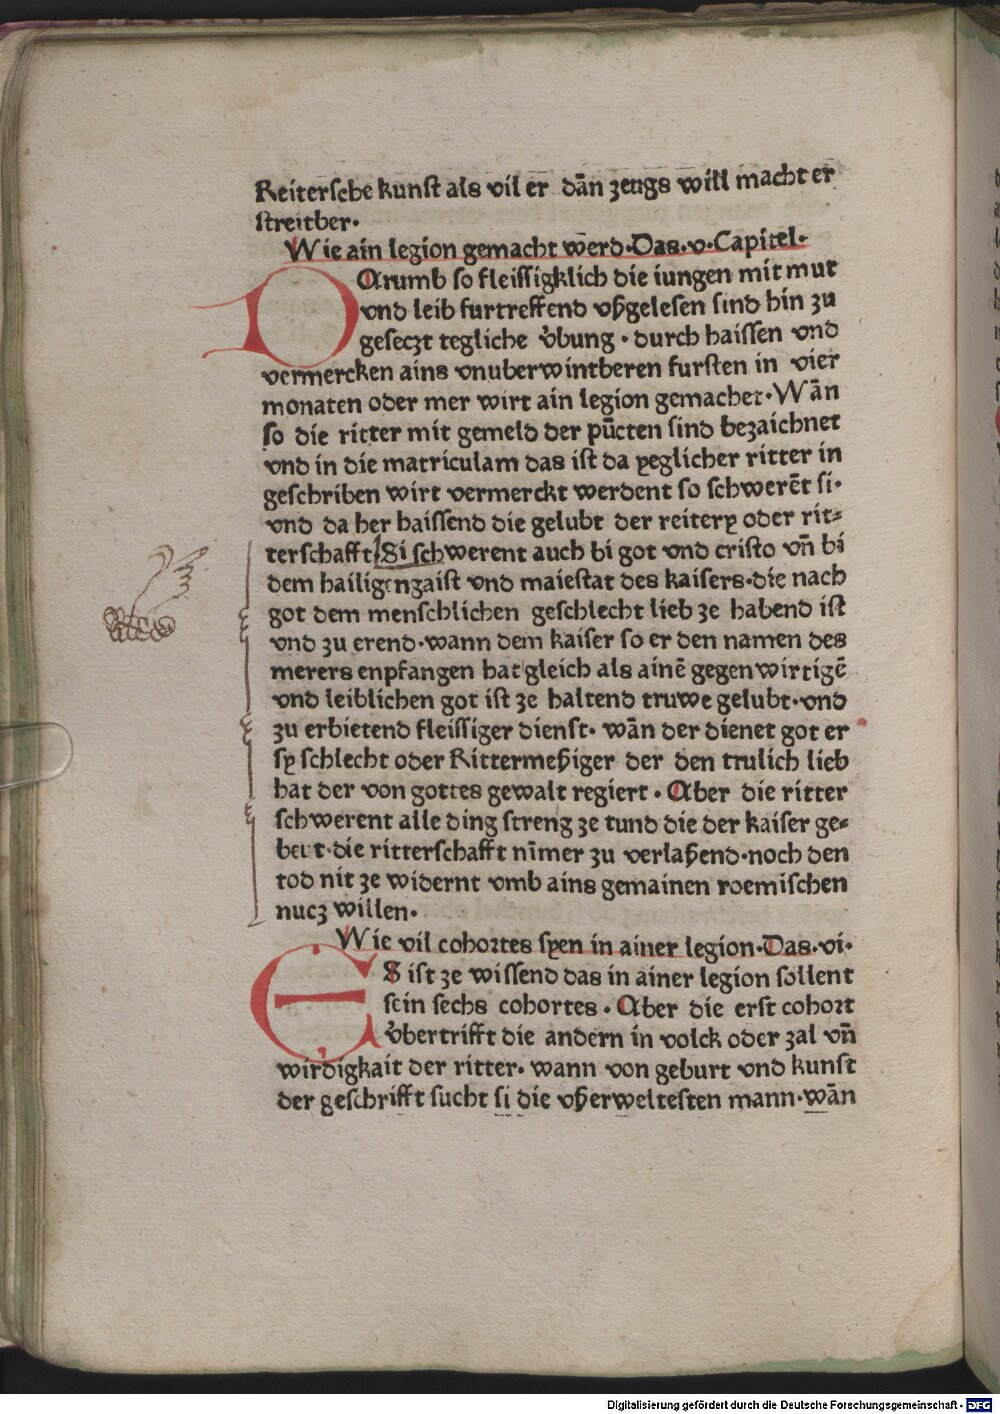 Reiterſche kunſt als vil er dān zeugs will macht er
ſtreitber·
Wie ain legion gemacht werd·Das·v·Capitel·
DArumb ſo fleiſſigklich die iungen mit mut
vnd leib furtreffend vßgeleſen ſind hin zu
geſeczt tegliche v̊bung · durch haiſſen vnd
vermercken ains vnuberwintberen furſten in vier
monaten oder mer wirt ain legion gemachet·Wān
ſo die ritter mit gemeld der pūcten ſind bezaichnet
vnd in die matriculam das iſt da yeglicher ritter in
geſchriben wirt vermerckt werdent ſo ſchwerēt ſi·
vnd da her haiſſend die gelubt der reitery oder rit⸗
terſchafft Si ſchwerent auch bi got vnd criſto vn̄ bi
dem hailigen gaiſt vnd maieſtat des kaiſers·die nach
got dem menſchlichen geſchlecht lieb ze habend iſt
vnd zu erend·wann dem kaiſer ſo er den namen des
merers enpfangen hat gleich als ainē gegenwirtigē
vnd leiblichen got iſt ze haltend truwe gelubt·vnd
zu erbietend fleiſſiger dienſt· wān der dienet got er
ſy ſchlecht oder Rittermeßiger der den trulich lieb
hat der von gottes gewalt regiert · Aber die ritter
ſchwerent alle ding ſtreng ze tund die der kaiſer ge⸗
beut·die ritterſchafft nīmer zu verlaßend·noch den
tod nit ze widernt vmb ains gemainen roemiſchen
nucz willen·
Wie vil cohortes ſyen in ainer legion·Das·vi·
ES iſt ze wiſſend das in ainer legion ſollent
ſein ſechs cohortes · Aber die erſt cohort
v̊bertrifft die andern in volck oder zal vn̄
wirdigkait der ritter· wann von geburt vnd kunſt
der geſchrifft ſucht ſi die vßerwelteſten mann·wān
Digitalisierung gefördert durch die Deutsche Forschungsgemeinschaft - DFG